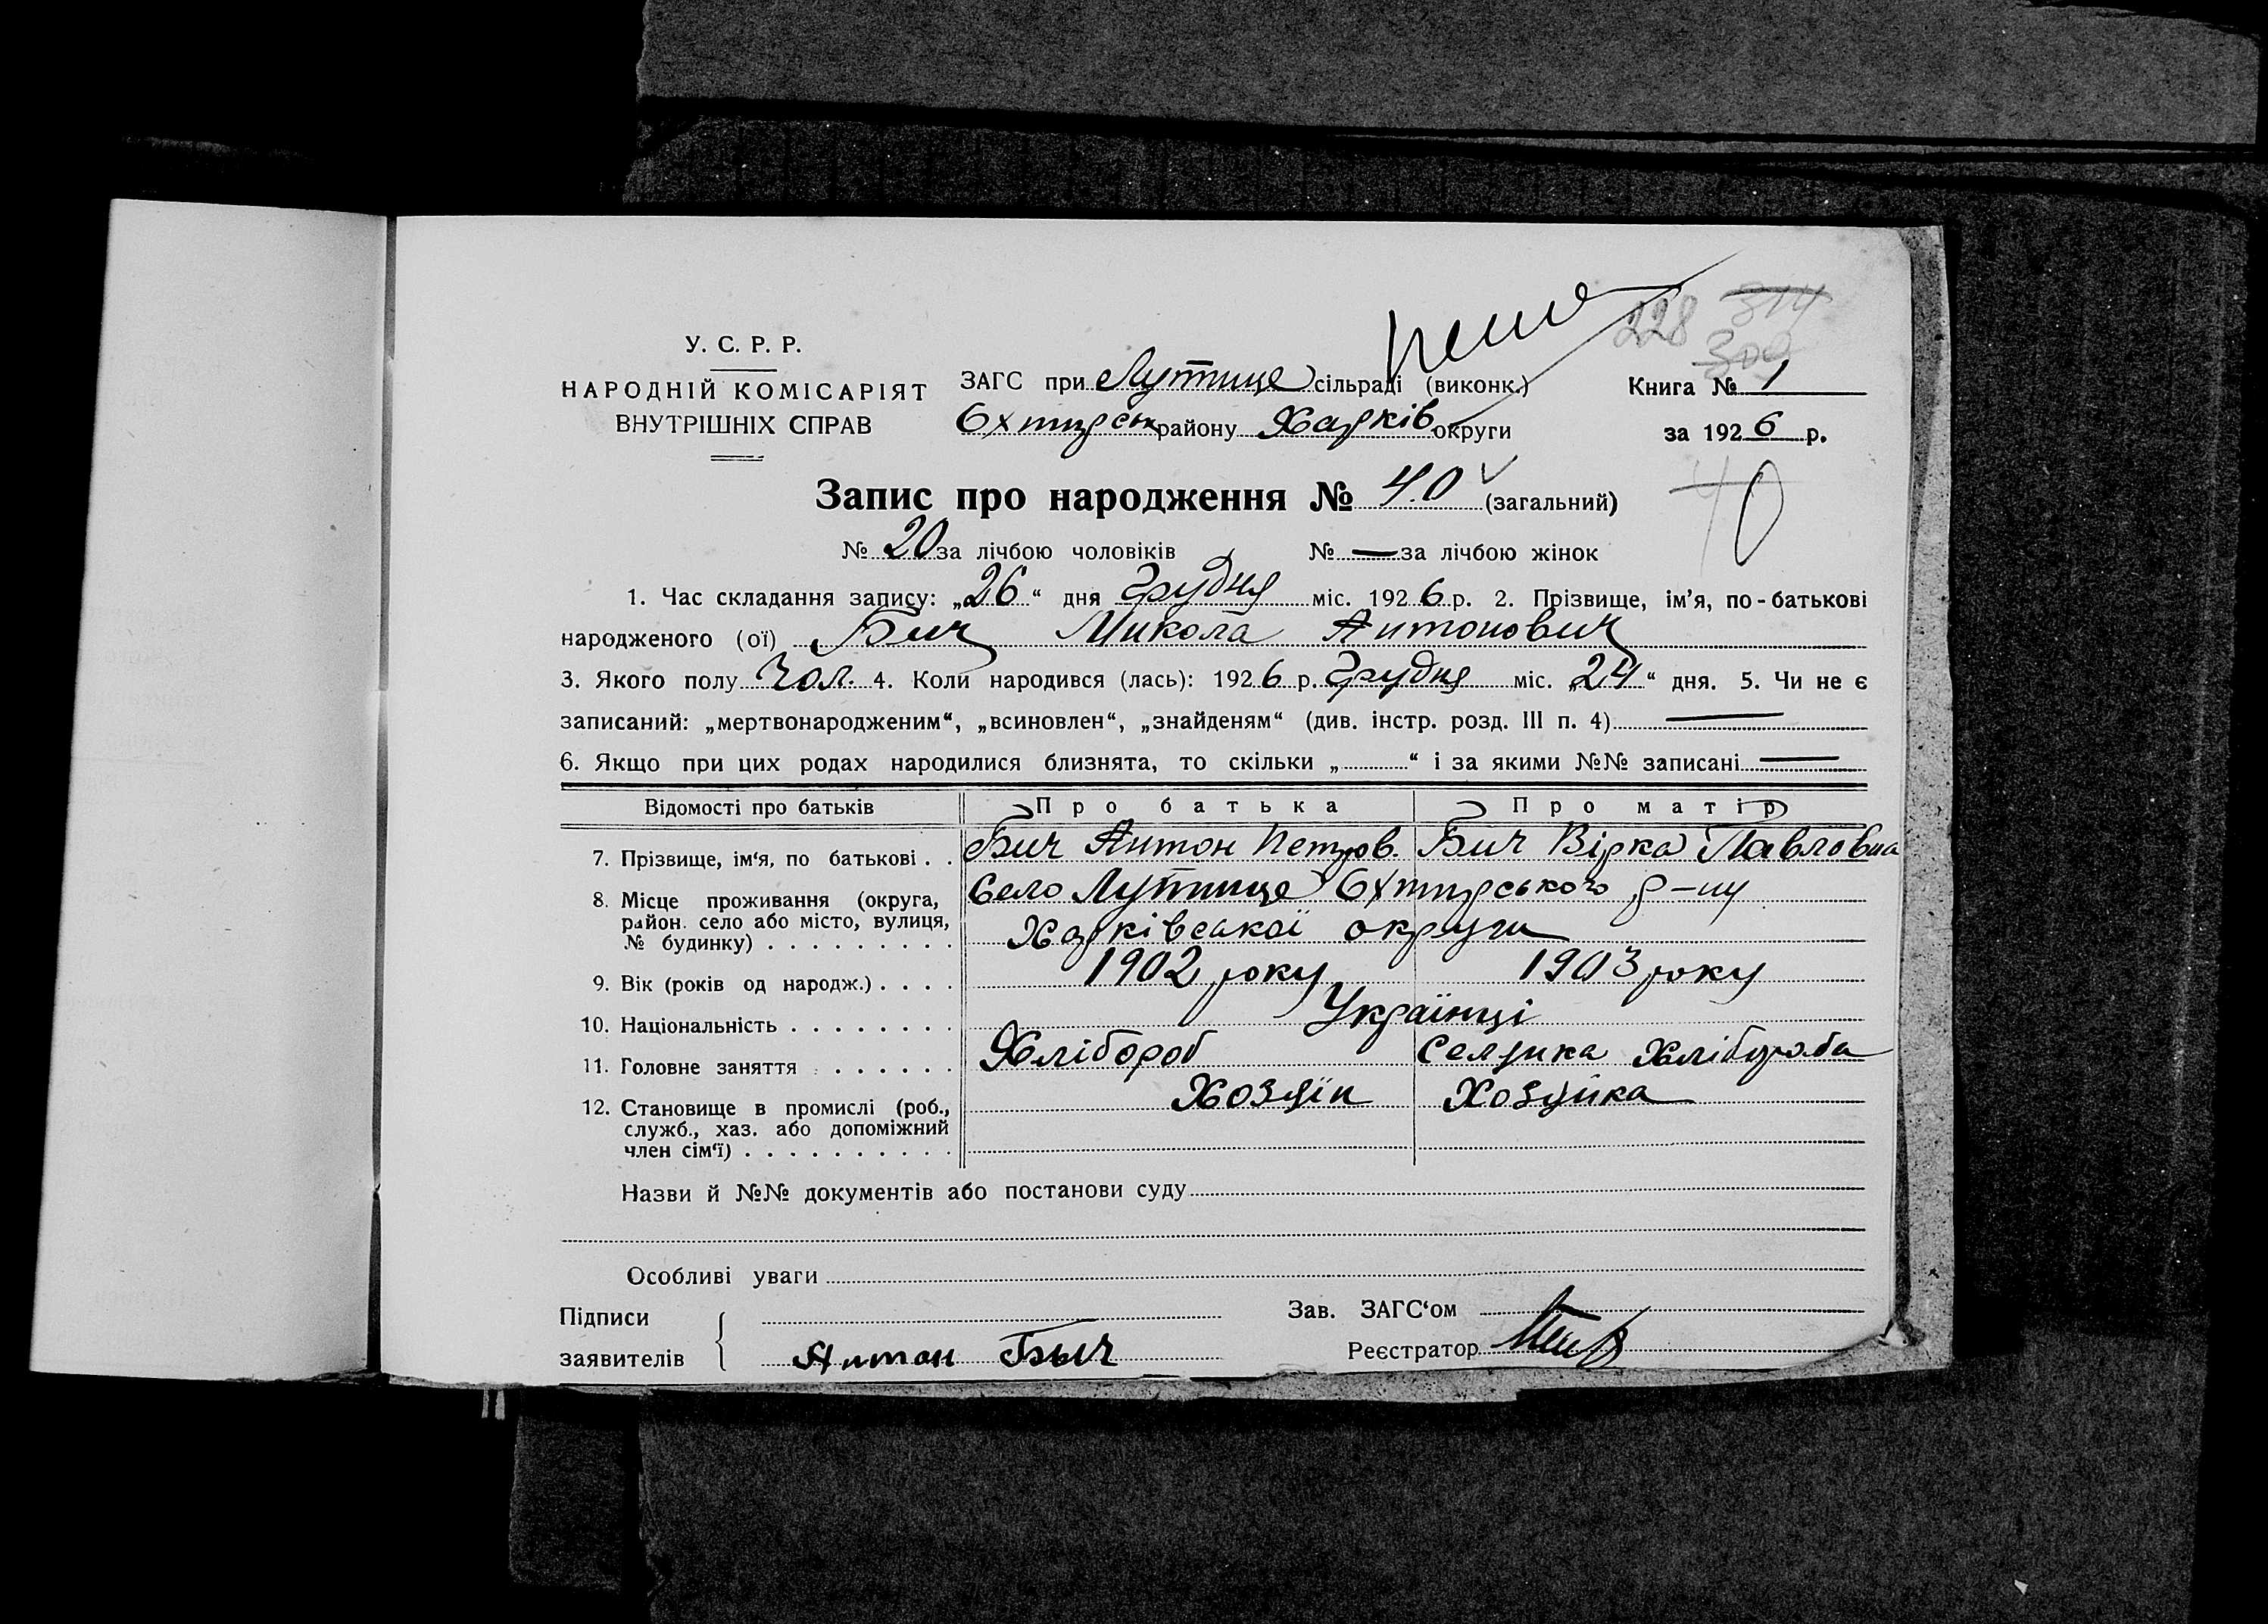 228 314
309
У. С. Р. Р.
НАРОДНІЙ КОМІСАРІЯТ
ВНУТРІШНІХ СПРАВ
ЗАГС при Лутище сільраді (виконк.)
Охтирськ району Харків округи
Книга № 1
за 1926 р.
Запис про народження № 40 (загальний)
40
№ 20 за лічбою чоловіків № — за лічбою жінок
1. Час складання запису: „26“ дня Грудня міс. 1926 р. 2. Прізвище, ім’я, по-батькові
народженого (ої) Бич Микола Антонович
3. Якого полу Чол. 4. Коли народився (лась): 1926 р. Грудня міс. „24“ дня. 5. Чи не є
записаний: „мертвонародженим“, „всиновлен“, „знайденям“ (див. інстр. розд. III п. 4) —
6. Якщо при цих родах народилися близнята, то скільки „ “ і за якими №№ записані —
Відомості про батьків Про батька Про матір
7. Прізвище, ім‘я, по батькові . . Бич Антон Петров. Бич Вірка Павловна
8. Місце проживання (округа, район. село або місто, вулиця, № будинку) . . . . . . . . . Село Лутище Охтирського р-ну
Харківської округи
9. Вік (років од народж.) . . . . 1902 року 1903 року
10. Національність . . . . . . . . Українці
11. Головне заняття . . . . . . Хлібороб Селянка Хлібороба
12. Становище в промислі (роб., служб., хаз. або допоміжний член сім‘ї) . . . . . . . . . . Хозяїн Хозяйка
Назви й №№ документів або постанови суду
Особливі уваги
Підписи
заявителів Антон Быч
Зав. ЗАГС‘ом
Реєстратор